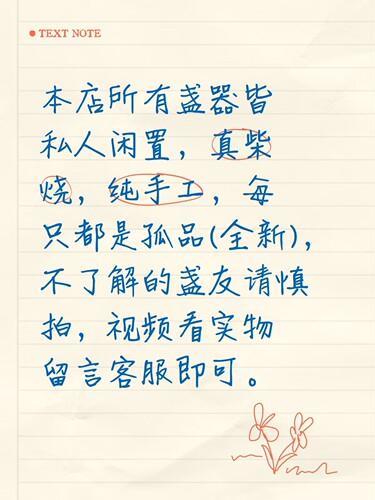 TEXT NOTE
本店所有盏器皆
私人闲置，真柴
烧，纯手工，每
只都是孤品(全新)，
不了解的盏友请慎
拍，视频看实物
留言客服即可。